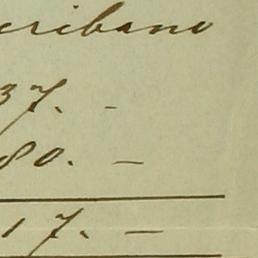 cribano
37. -
80. —
17. —